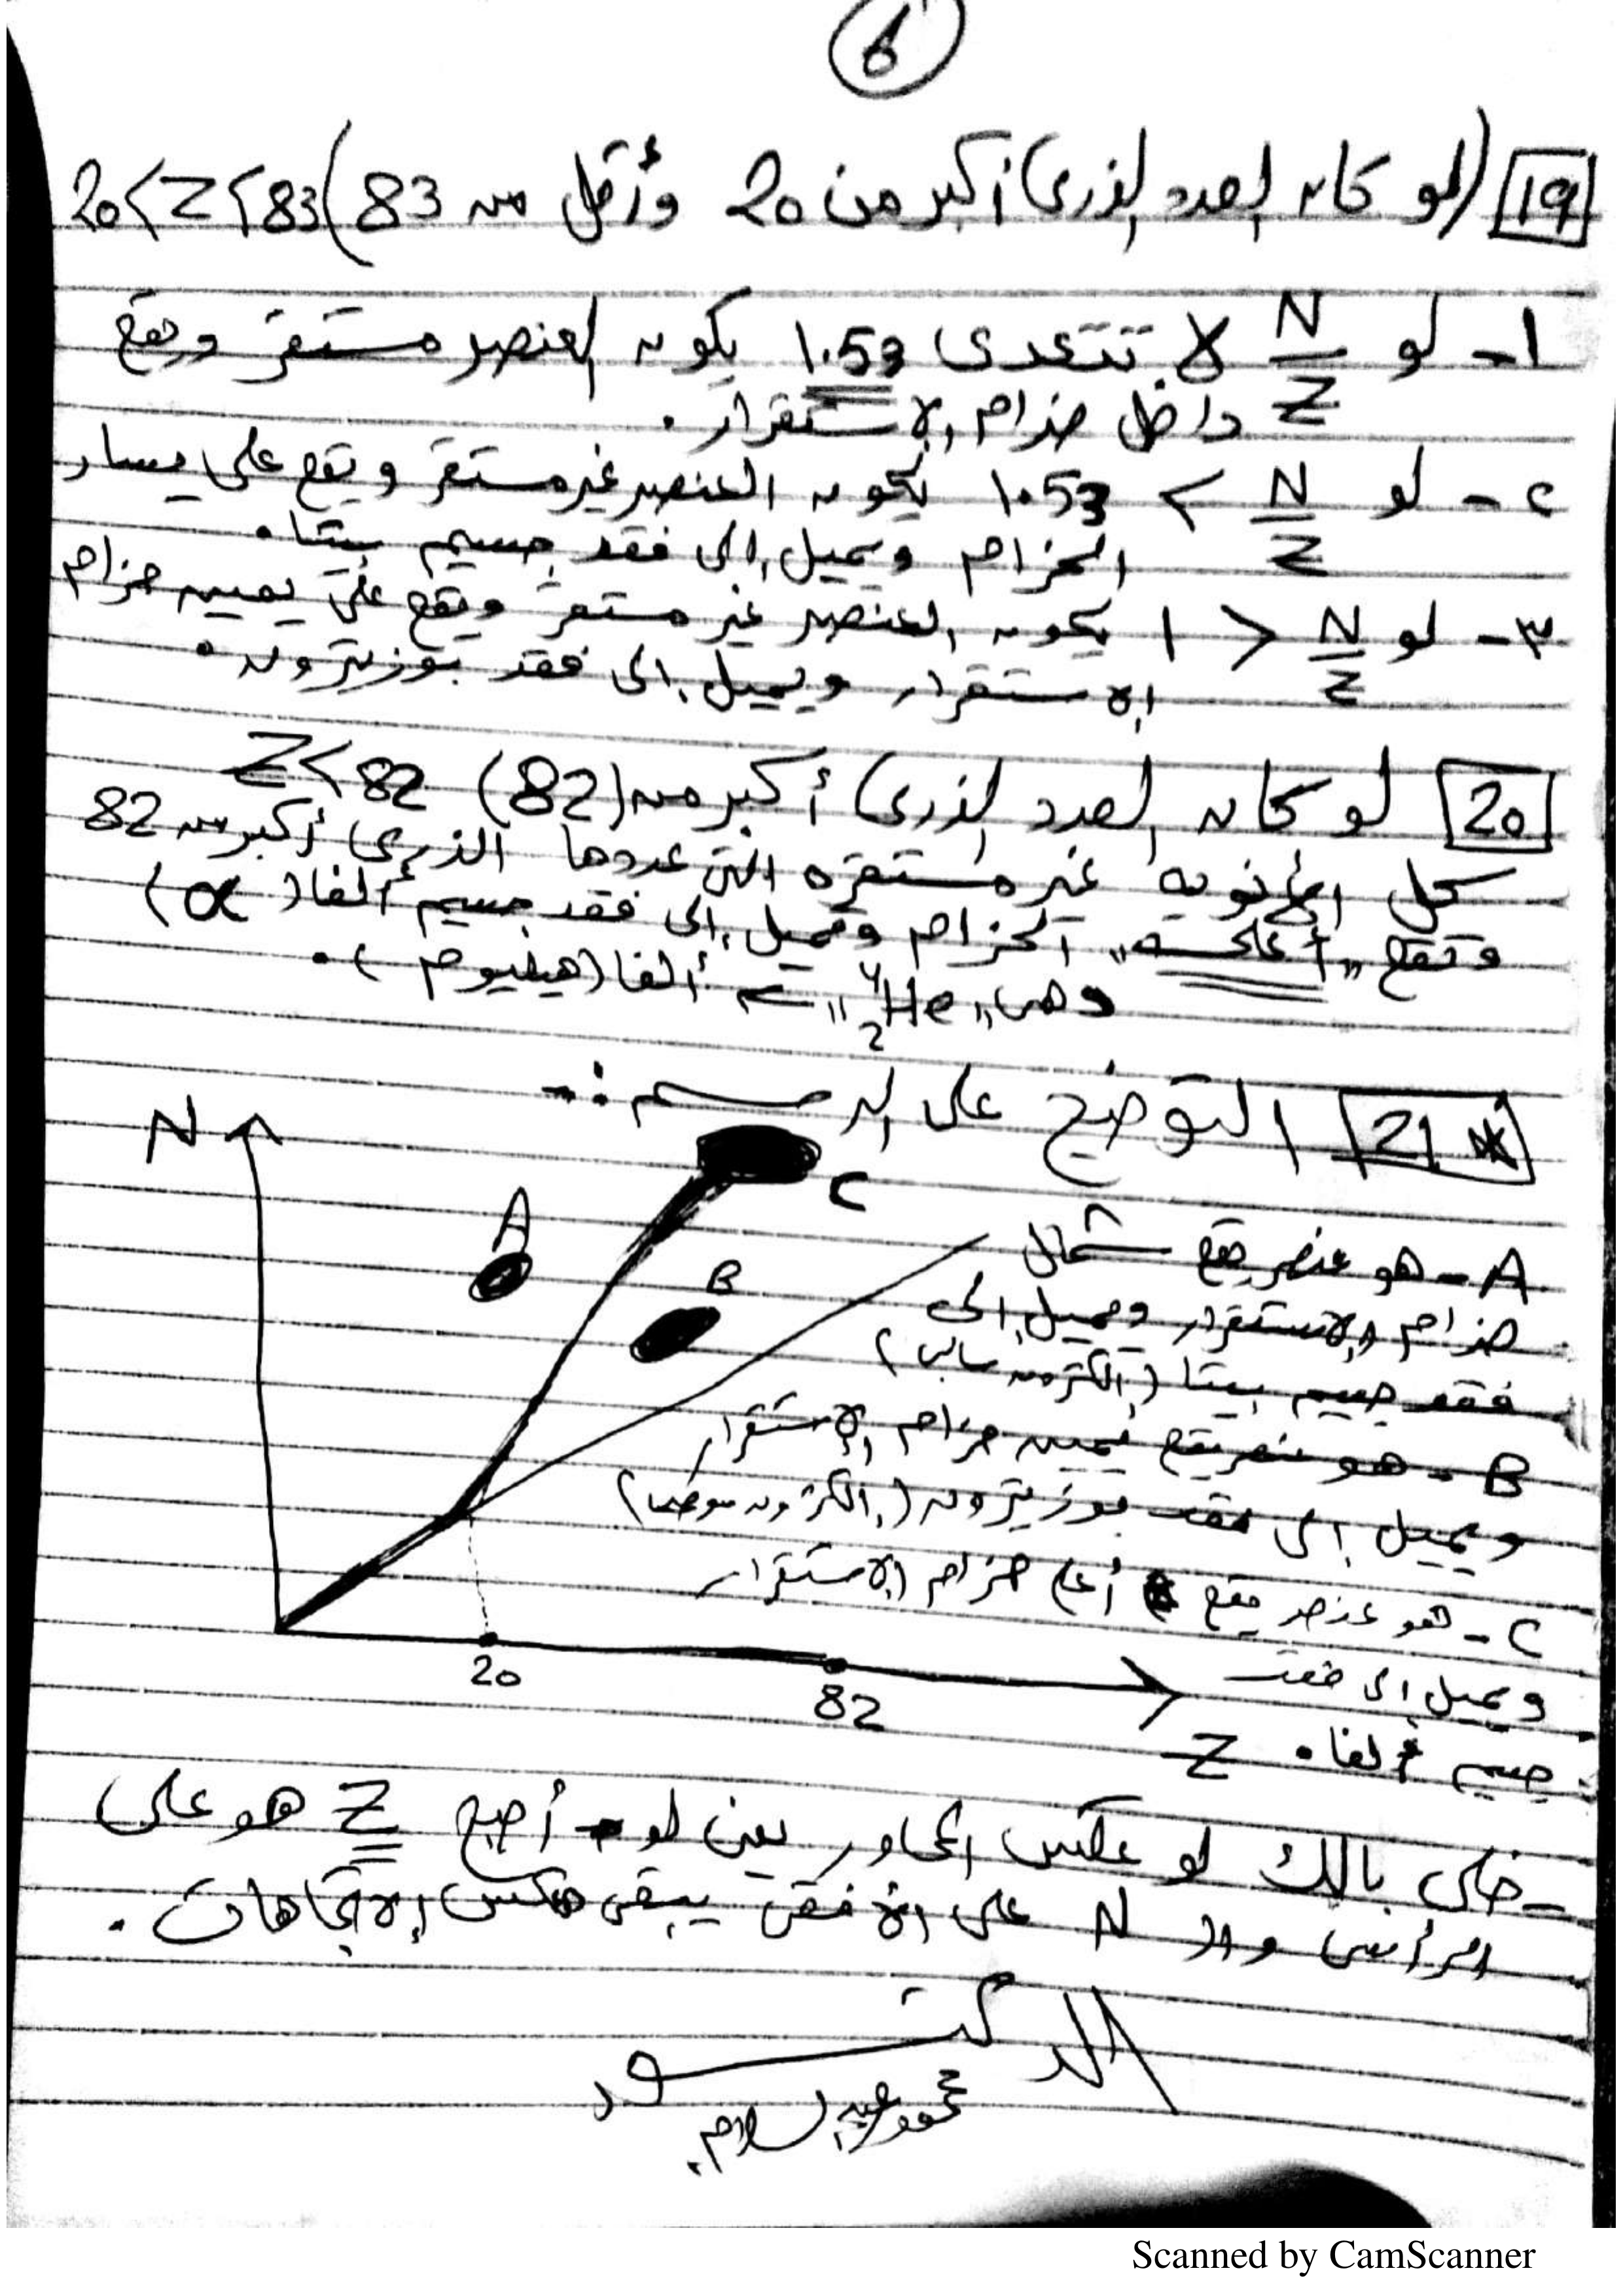 6
19 (لو كان العدد الذرى أكبر من 20 وأقل من 83) 20<Z<83
1- لو N/Z لا تتعدى 1.53 يكون العنصر مستقر ويقع
داخل حزام الاستقرار.
٢- لو N/Z > 1.53 يكون العنصر غير مستقر ويقع على يسار
الحزام ويميل إلى فقد جسيم بيتا.
٣- لو N/Z < 1 يكون العنصر غير مستقر ويقع على يمين حزام
الاستقرار ويميل إلى فقد بوزيترون.
20 لو كان العدد الذرى أكبر من (82) Z<82
كل الأنوية غير مستقره التى عددها الذرى أكبر من 82
وتقع "أعلى" الحزام وتميل إلى فقد جسيم ألفا (α)
وهى "⁴₂He" ألفا (هيليوم).
21 * التوضيح على الرسم :-
N
A
B
C
20
82
Z
A- هو عنصر يقع شمال
حزام الاستقرار ويميل إلى
فقد جسيم بيتا (إلكترون سالب)
B- هو عنصر يقع يمين حزام الاستقرار
ويميل إلى فقد بوزيترون (إلكترون موجب)
C- هو عنصر يقع أعلى حزام الاستقرار
ويميل إلى فقد
جسيم ألفا.
- خلى بالك لو عكس المحاور يعنى لو أصبح Z هو على
الرأسى والـ N على الأفقى يبقى هنعكس الاتجاهات.
الدكتور
محمود عبد السلام
Scanned by CamScanner